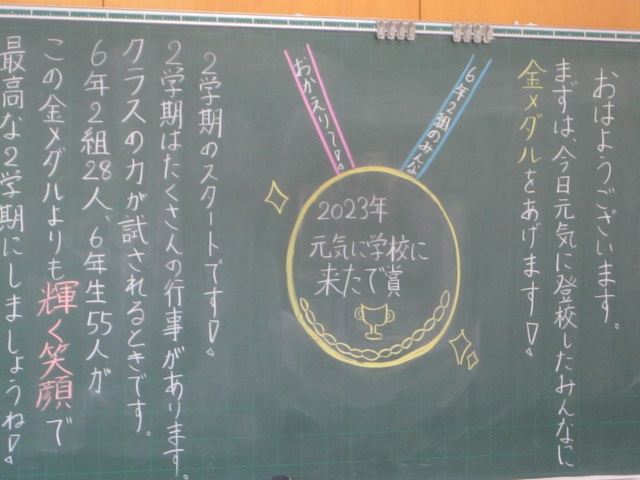 おはようございます。
まずは、今日元気に登校したみんなに
金メダルをあげます!!
6年2組のみんな
おかえりて!!
2023年
元気に学校に
来たで賞
2学期のスタートです!!
2学期はたくさんの行事があります。
クラスの力が試されるときです。
6年2組28人、6年生55人が
この金メダルよりも輝く笑顔で
最高な2学期にしましょうね!!